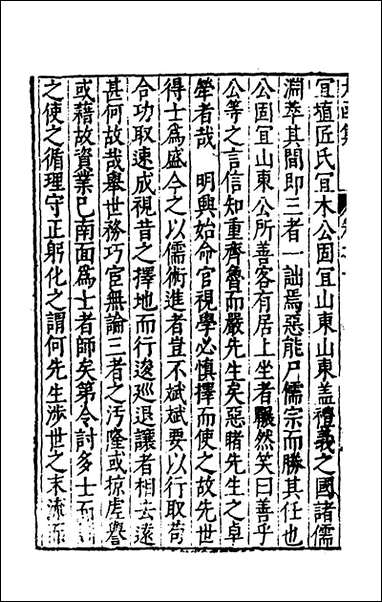 宜埴匠氏宜木公固宜山東山東蓋禮義之國諸儒
淵萃其間即三者一詘焉惡能尸儒宗而勝其任也
公固宜山東公所善客有居上坐者冁然笑曰善乎
公等之言信知重齊魯而嚴先生矣惡睹先生之卓
犖者哉　明興始命官視學必慎擇而使之故先世
得士為盛今之以儒術進者豈不斌斌要以行取苟
合功取速成視昔之擇地而行逡巡退讓者相去遠
甚何故哉舉世務巧宦無論三者之汚隆或掠虛譽
或藉故資業已南面為士者師矣第令討多士而
之使之循理守正躬化之謂何先生涉世之末流